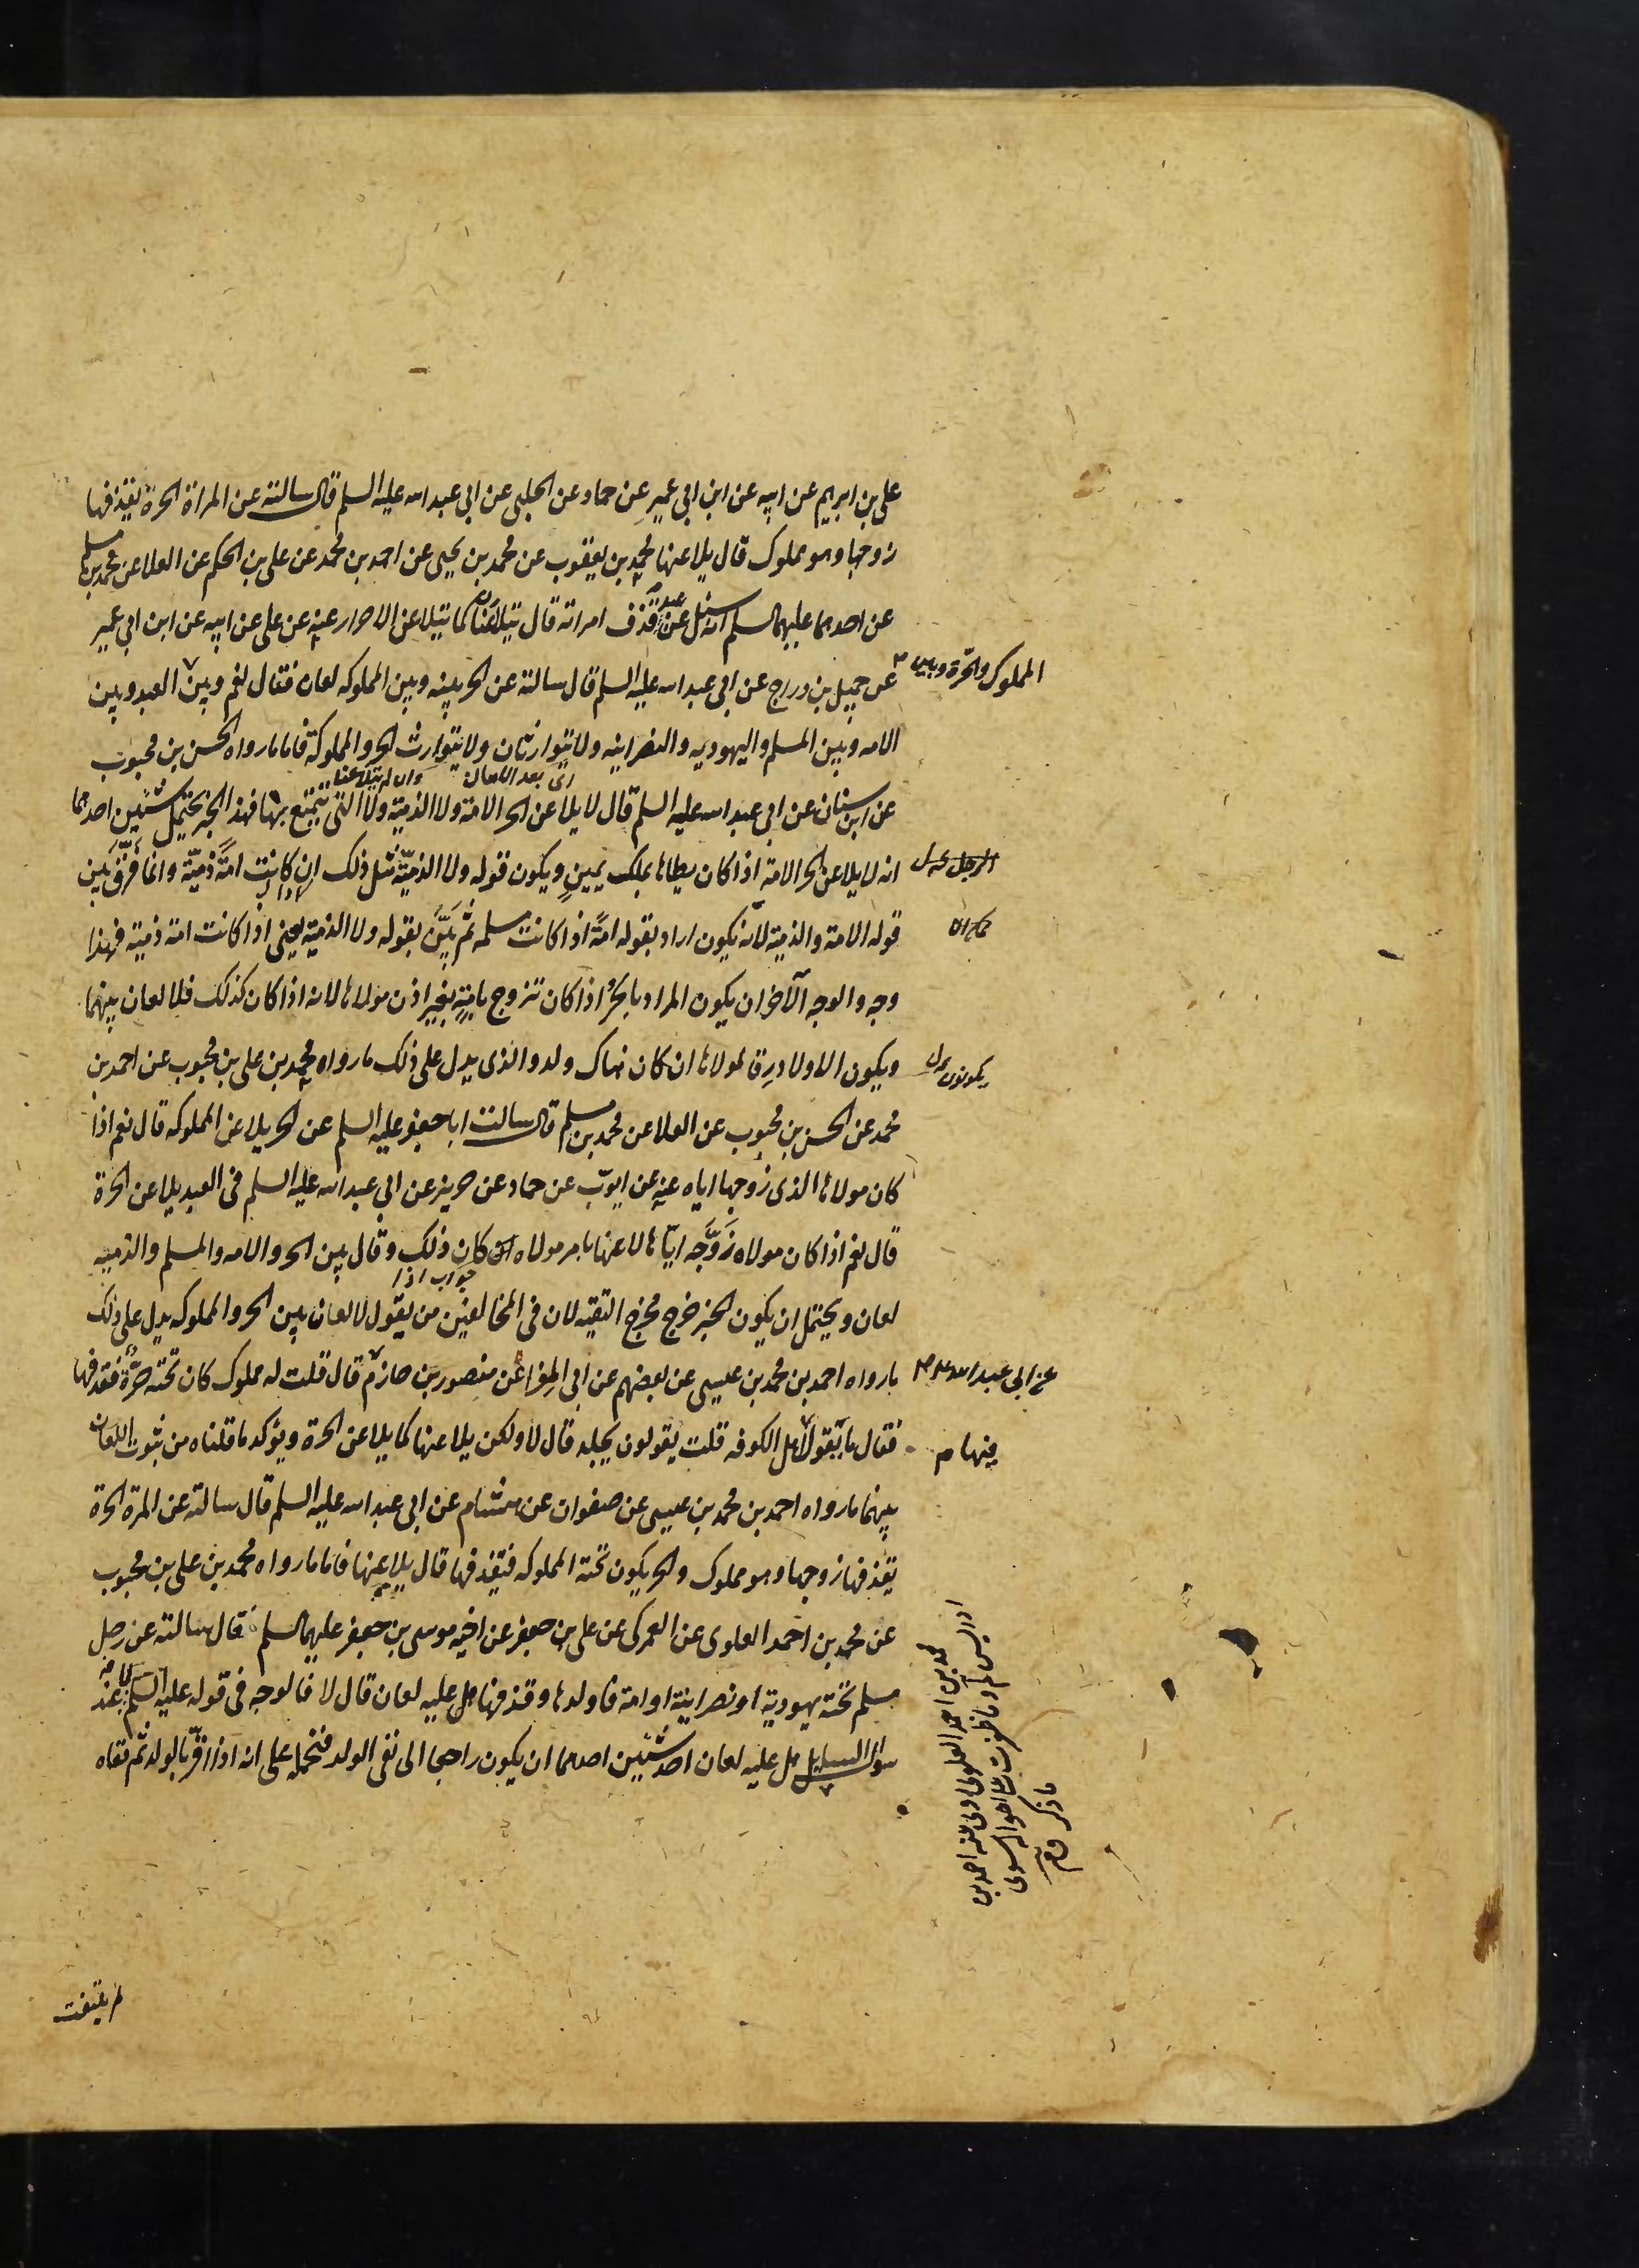 على بن ابرهيم عن ابيه عن ابن ابى عمير عن حماد عن الحلبى عن ابى عبد الله عليه السلم قال سالته عن المراة الحرة يقذفها
زوجها وهو مملوك قال يلاعنها محمد بن يعقوب عن محمد بن يحيى عن احمد بن محمد عن على بن الحكم عن العلا عن محمد بن مسلم
عن احدهما عليهما السلم انه سئل عن عبد قذف امراته قال يتلاعنان كما يتلاعن الاحرار عنه عن على عن ابيه عن ابن ابى عمير
عن جميل بن دراج عن ابى عبد الله عليه السلم قال سالته عن الحر بينه وبين المملوكه لعان فقال نعم وبين العبد وبين
المملوك والحرة وبين
الامه وبين المسلم واليهوديه والنصرانيه ولا يتوارثان ولا يتوارث الحر والمملوكة فاما ما رواه الحسن بن محبوب
اى بعد اللعان وان لم يتلاعنا
عن ابن سنان عن ابى عبد الله عليه السلم قال لا يلاعن الحر الامة ولا الذمية ولا التى يتمتع بها فهذا الخبر يحتمل شيئين احدهما
انه لا يلاعن الحر الامة اذا كان يطاها بملك يمين ويكون قوله ولا الذميّة مثل ذلك ان كانت امةً ذميّة وانما فرّق بين
الرجل
قوله الامة والذمية لانه يكون اراد بقوله امةً اذا كانت مسلمه ثم بيّن بقوله ولا الذمية يعنى اذا كانت امة ذمية فهذا
وجه والوجه الآخر ان يكون المراد بالحرّ اذا كان تزوج بامةٍ بغير اذن مولاها لانه اذا كان كذلك فلا لعان بينهما
ويكون الاولاد رقا لمولاها ان كان هناك ولد والذى يدل على ذلك ما رواه محمد بن على بن محبوب عن احمد بن
محمد عن الحسن بن محبوب عن العلا عن محمد بن مسلم قال سالت ابا جعفر عليه السلم عن الحر يلاعن المملوكه قال نعم اذا
كان مولاها الذى زوجها اياه عنه عن ايوّب عن حماد عن حريز عن ابى عبد الله عليه السلم فى العبد يلاعن الحرة
قال نعم اذا كان مولاه زَوَّجه ايّاها لاعنها بامر مولاه كان ذلك وقال بين الحر والامه والمسلم والذميه
جواب اذا
لعان ويحتمل ان يكون الخبر خرج مخرج التقيّه لان فى المخالفين من يقول لا لعان بين الحر والمملوكه يدل على ذلك
ما رواه احمد بن محمد بن عيسى عن بعضهم عن ابى المغرا عن منصور بن حازم قال قلت له مملوك كان تحته حرّة فقذفها
عن ابى عبد الله
فقال ما يقول اهل الكوفه قلت يقولون يجلد قال لا ولكن يلاعنها كما يلاعن الحرة ويؤكد ما قلناه من ثبوت اللعان
منها م
بينهما ما رواه احمد بن محمد بن عيسى عن صفوان عن هشام عن ابى عبد الله عليه السلم قال سالته عن المرة الحرة
يقذفها زوجها وهو مملوك والحر يكون تحته المملوكه فيقذفها قال يلاعنها فاما ما رواه محمد بن على بن محبوب
عن محمد بن احمد العلوى عن العمركى عن على بن جعفر عن اخيه موسى بن جعفر عليهما السلم قال سالته عن رجل
مسلم تحته يهودية او نصرانية او امة فاولدها وقذفها هل عليه لعان قال لا فالوجه فى قوله عليه السلم لا عند
سوال السايل هل عليه لعان احد شيئين احدهما ان يكون راجعا الى نفى الولد فنحمله على انه اذا اقرّ بالولد ثم نفاه
محمد بن احمد العلوى روى عنه احمد بن
ادريس
ما ذكر
لم يلتفت